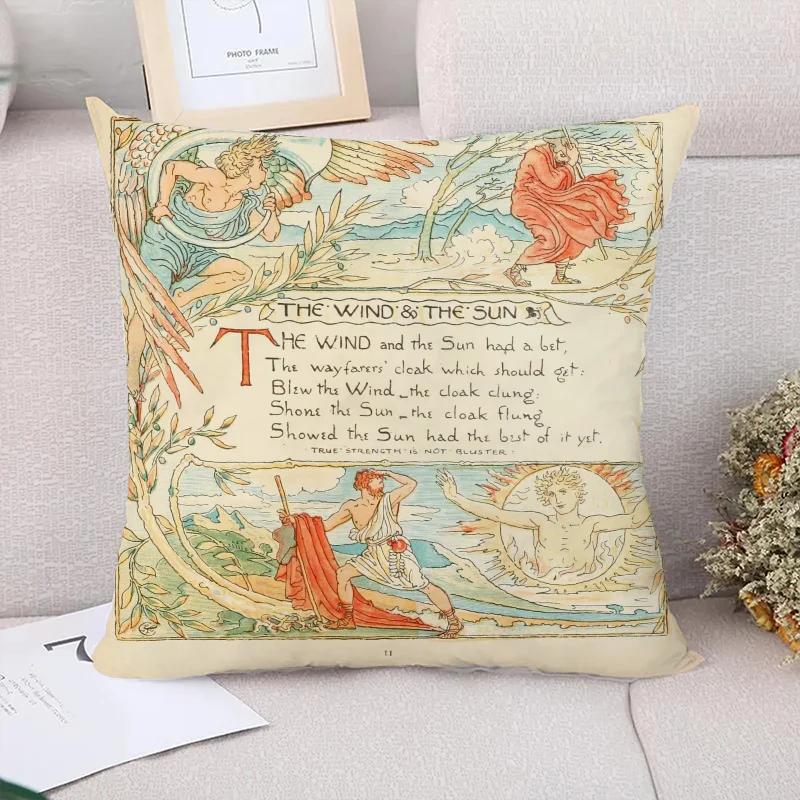 PHOTO FRAME
THE WIND & THE SUN
THE WIND and the Sun had a bet,
The wayfarers' cloak which should get:
Blew the Wind _ the cloak clung:
Shone the Sun _ the cloak flung
Showed the Sun had the best of it yet.
TRUE STRENGTH IS NOT BLUSTER
11
7